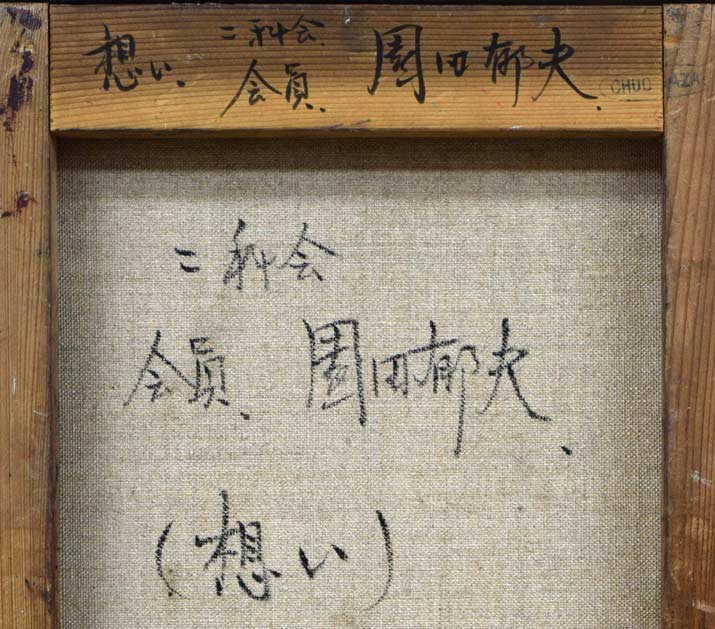 想い、二科会
会員、園田郁夫、
CHUO
AZA
二科会
会員、園田郁夫、
(想い)